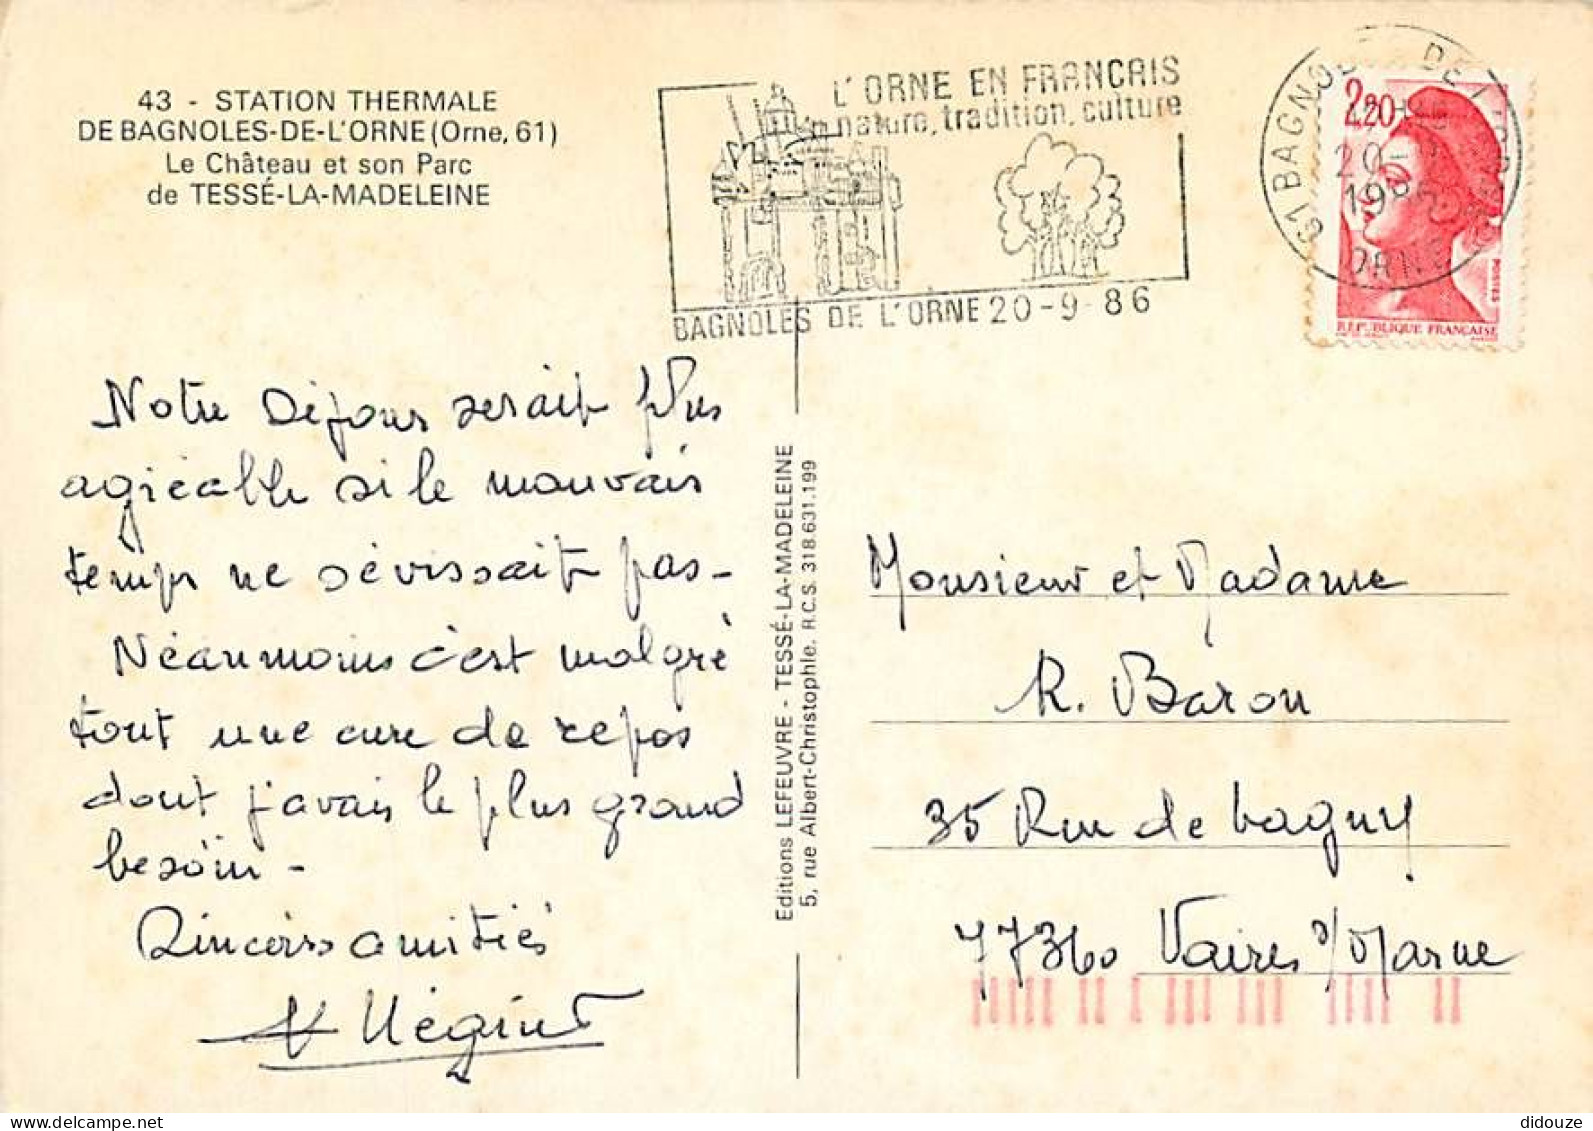 43 - STATION THERMALE
DE BAGNOLES-DE-L'ORNE (Orne, 61)
Le Château et son Parc
de TESSÉ-LA-MADELEINE
L'ORNE EN FRANCAIS
nature, tradition, culture
BAGNOLES DE L'ORNE 20-9-86
61 BAGNOLES DE L'ORNE
20-9
1986
ORNE
2,20
POSTES
REPUBLIQUE FRANÇAISE
Notre Séjour serait plus
agréable si le mauvais
temps ne sévissait pas-
Néanmoins c'est malgré
tout une cure de repos
dont j'avais le plus grand
besoin -
Sincères amitiés
Editions LEFEUVRE - TESSÉ-LA-MADELEINE
5, rue Albert-Christophle. R.C.S. 318.631.199
Monsieur et Madame
R. Baron
35 Rue de Lagny
77360 Vaires s/Marne
delcampe.net
didouze